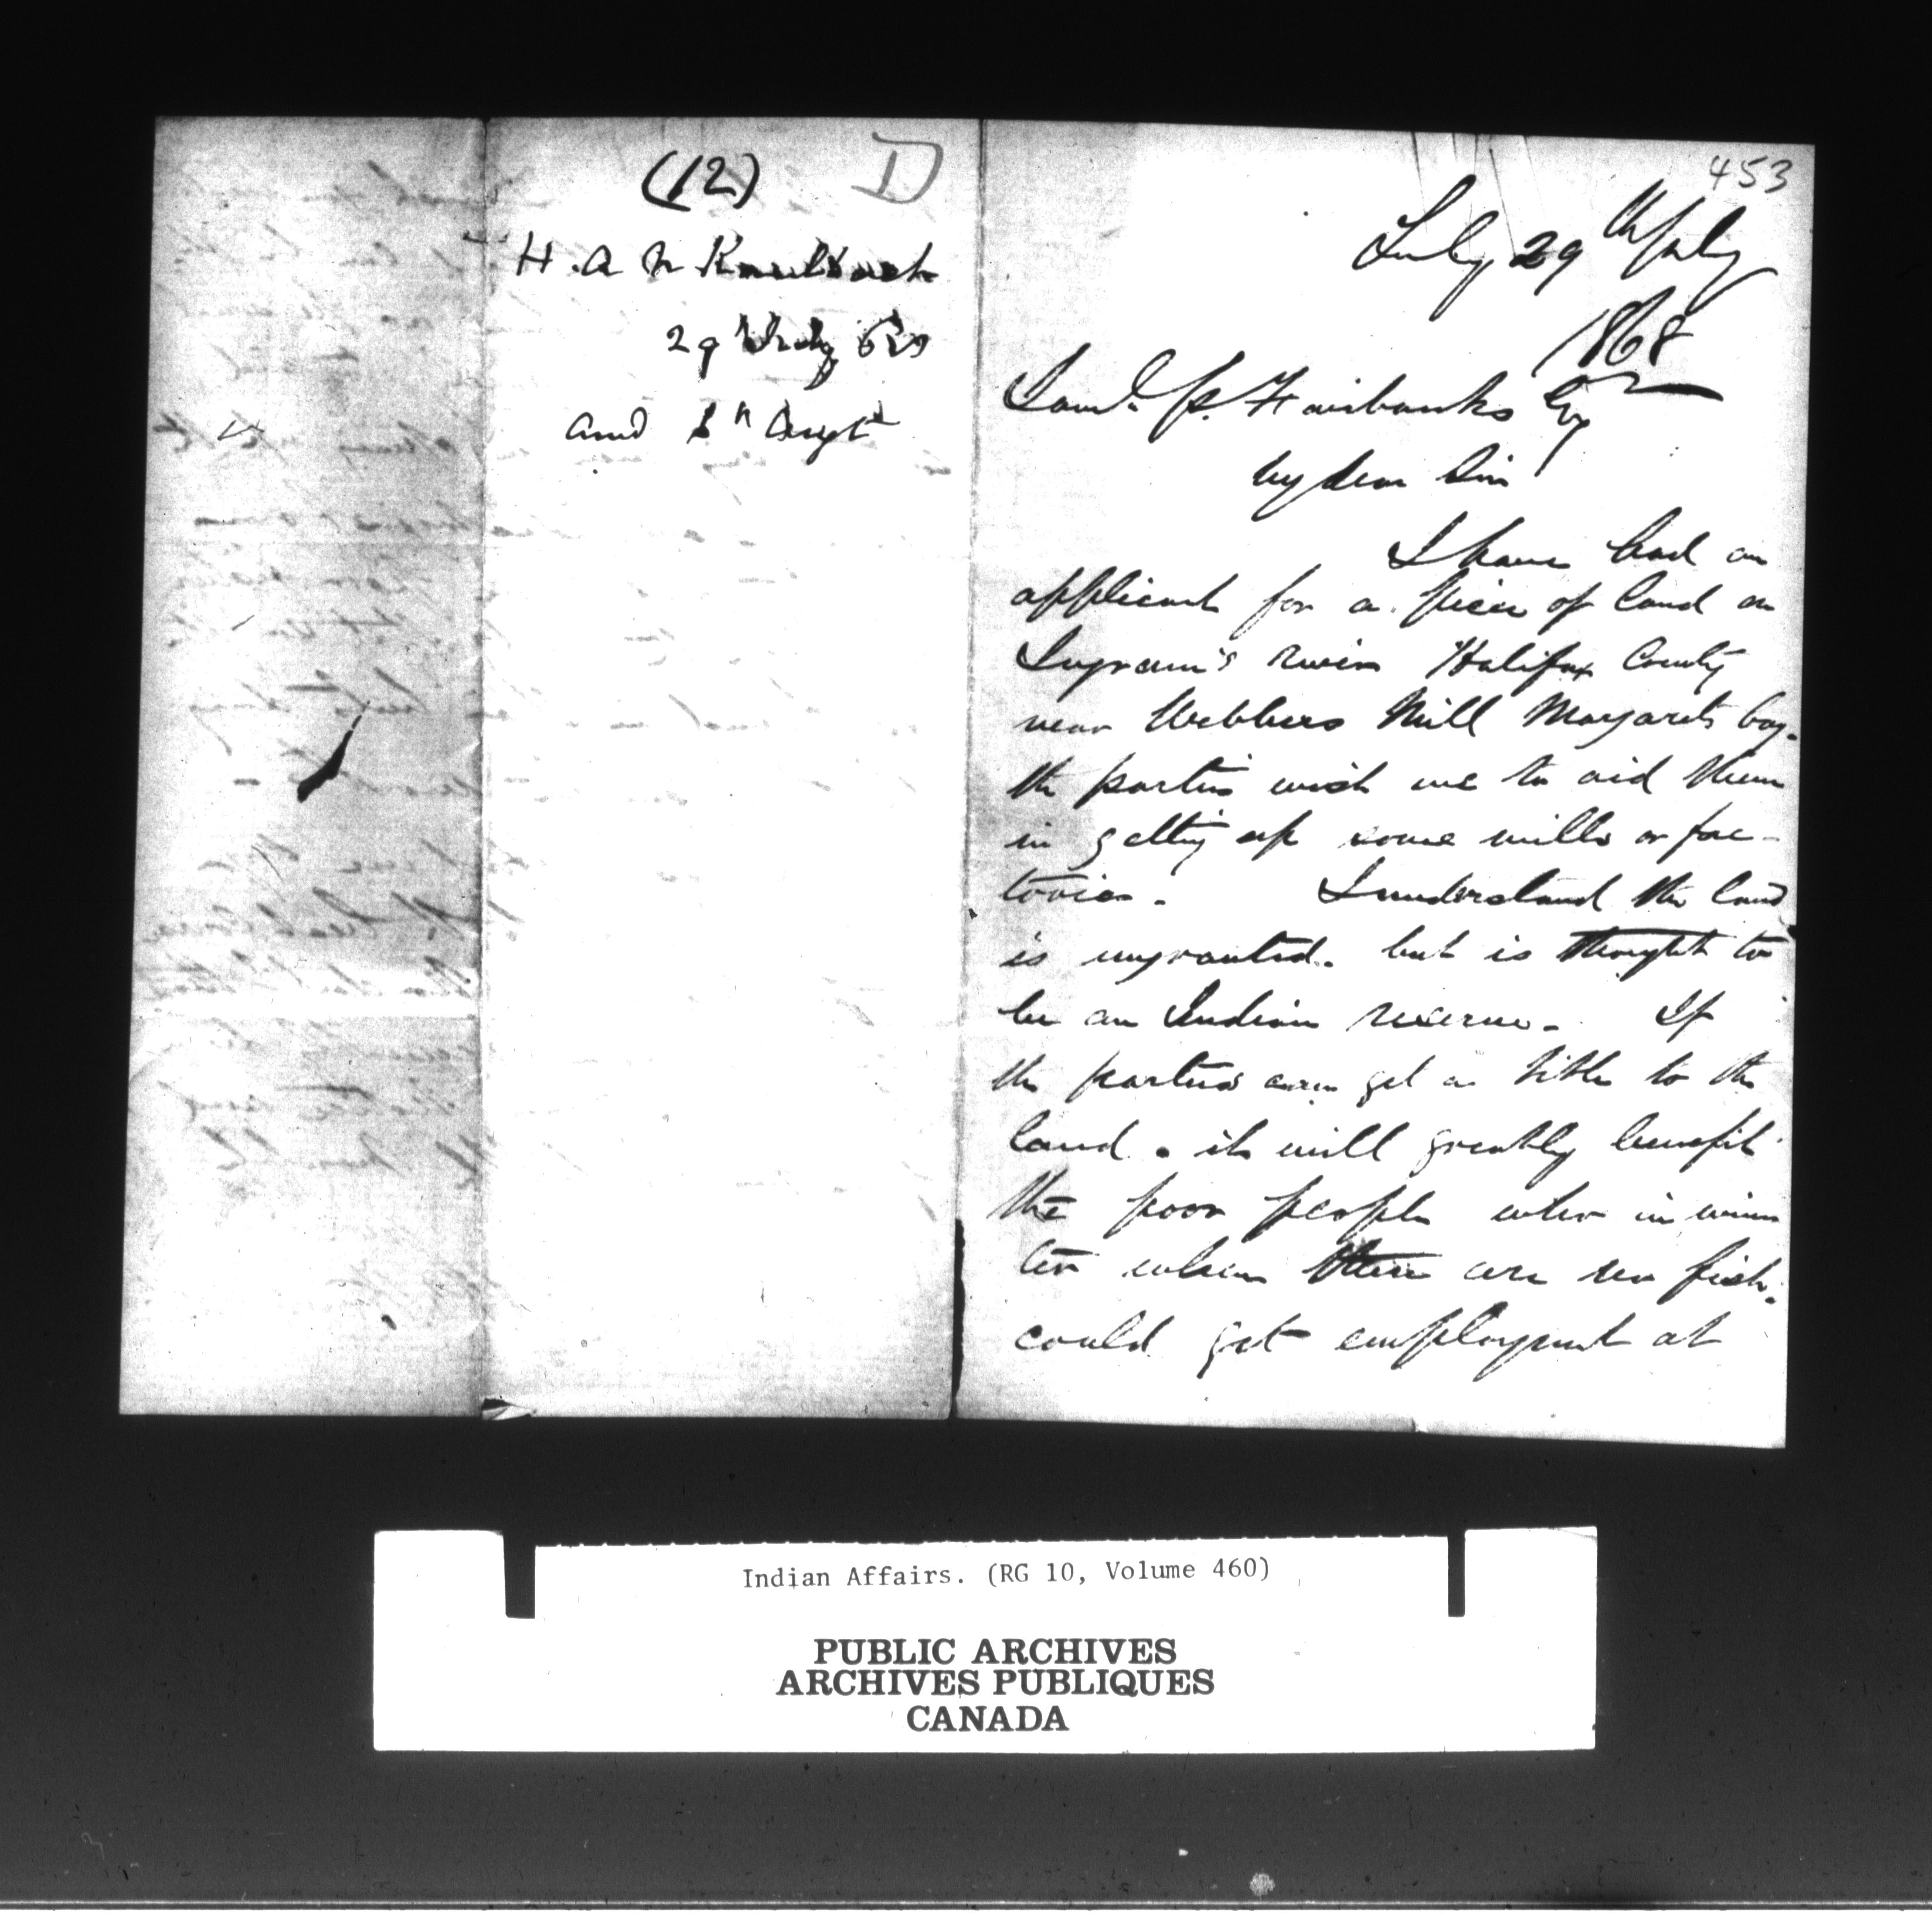 (12)
D
H. A. N Kaulback
29 July 68
ansd 8th Augst
453
July 29th July
1868
Saml. P. Fairbanks Esq
My dear Sir
I have had an
applicant for a piece of land on
Ingram's river Halifax County
near Webbers Mill Margarets bay.
the parties wish me to aid them
in getting up some mills or fac-
tories. I understand the land
is ungranted. but is thought to
be an Indian reserve. If
the parties can get a title to the
land. it will greatly benefit
the poor people who in win
ter when there are no fish.
could get employment at
Indian Affairs. (RG 10, Volume 460)
PUBLIC ARCHIVES
ARCHIVES PUBLIQUES
CANADA